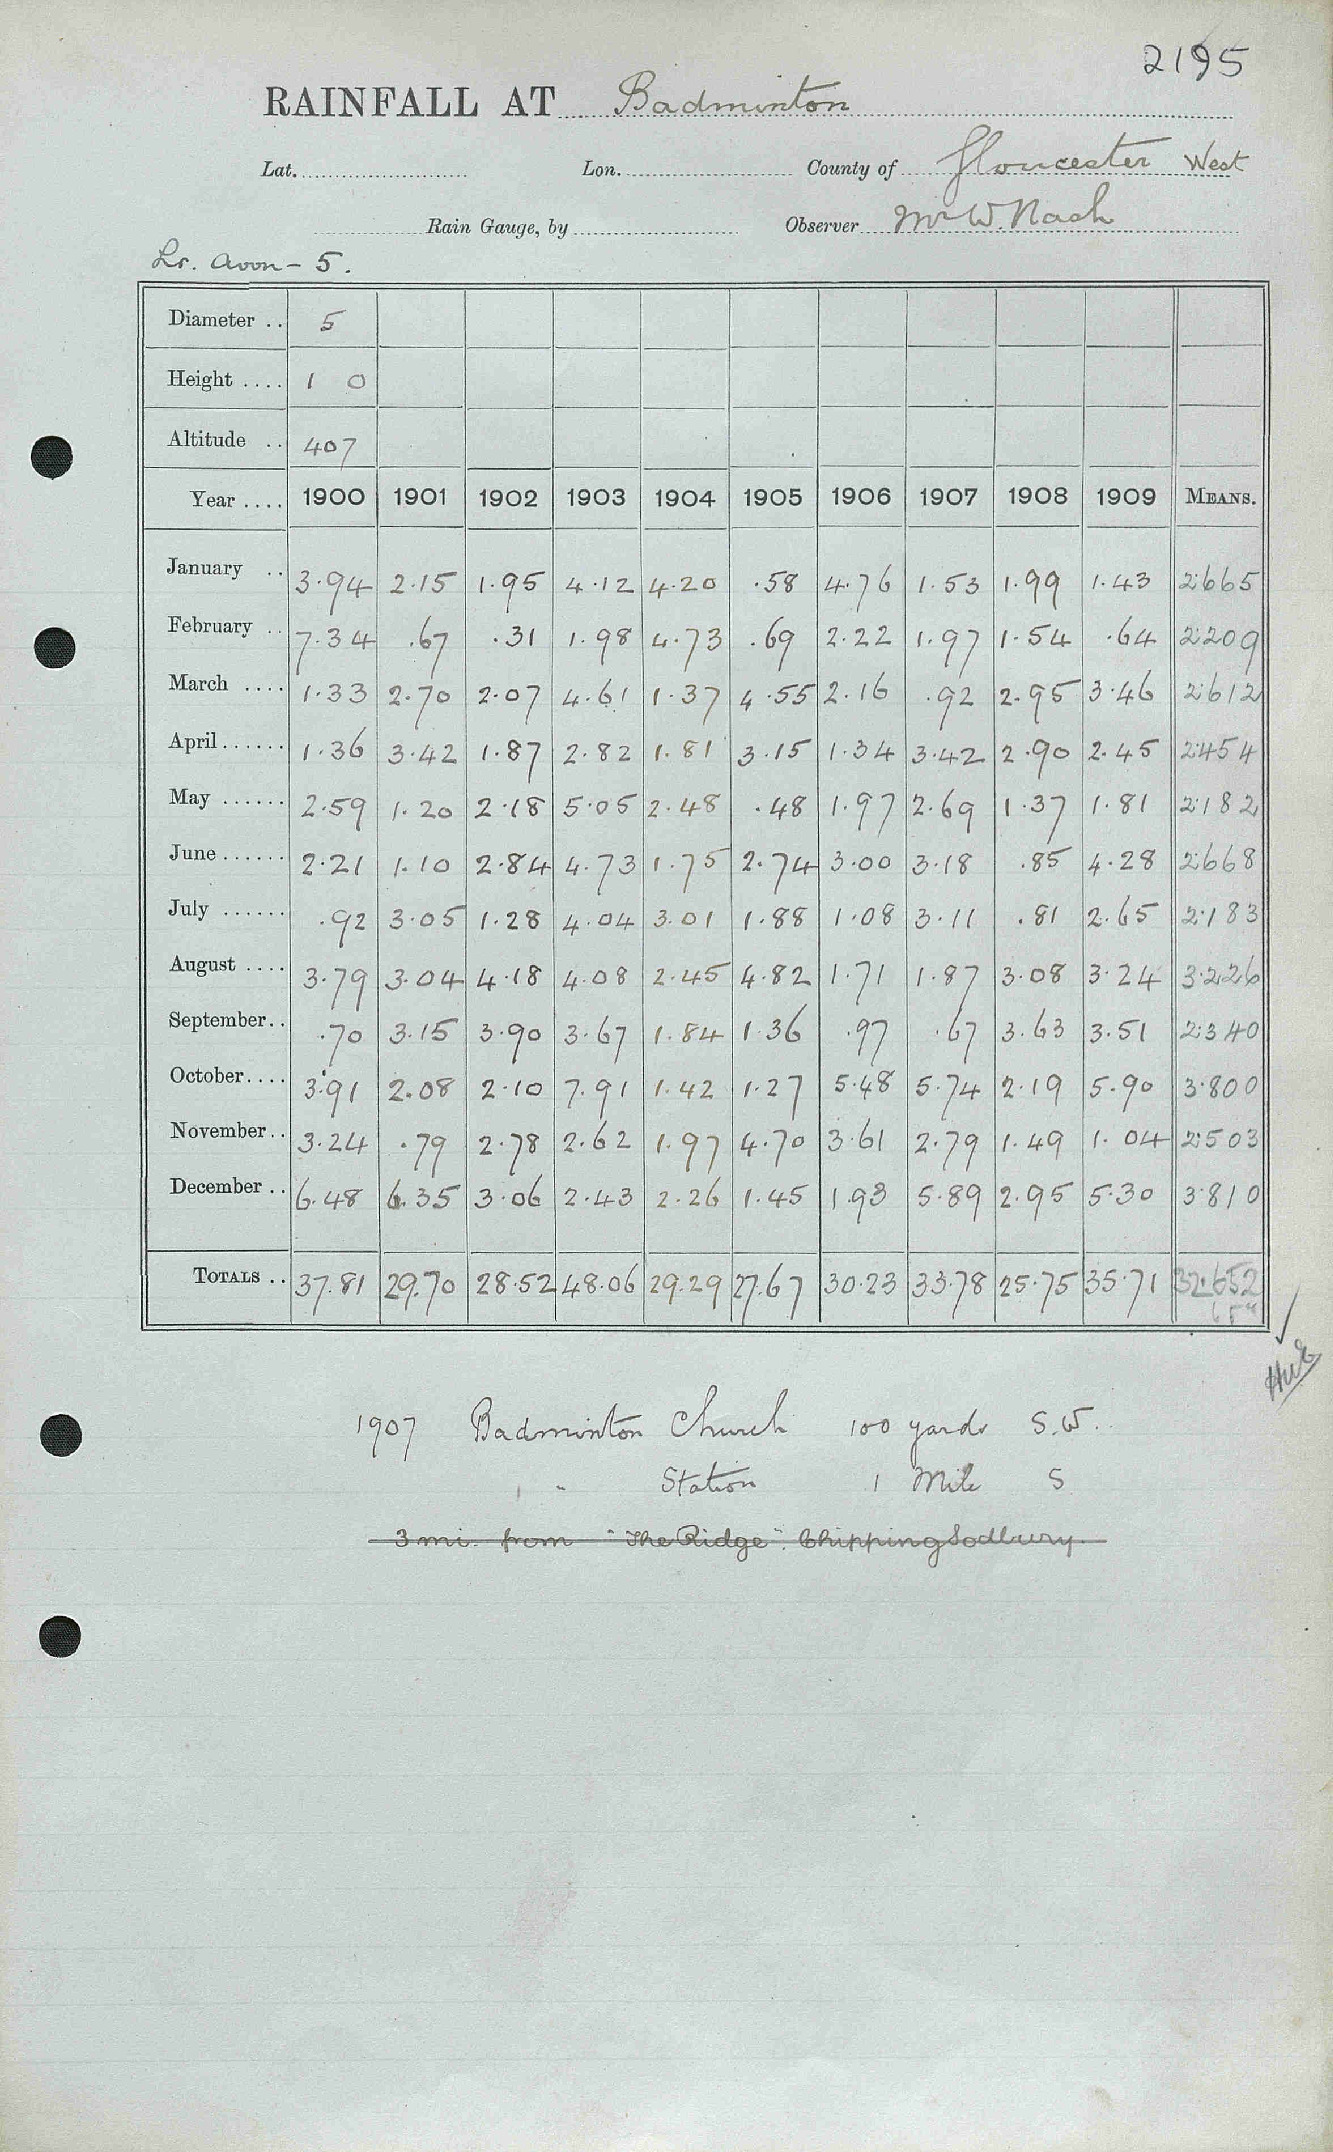 2195
RAINFALL AT Badminton
Lat. Lon. County of Gloucester West
Rain Gauge, by Observer Mr W. Nash
Lr. Avon - 5.
Diameter .. 5
Height .... 1 0
Altitude .. 407
Year .... 1900 1901 1902 1903 1904 1905 1906 1907 1908 1909 MEANS.
January .. 3.94 2.15 1.95 4.12 4.20 .58 4.76 1.53 1.99 1.43 2.665
February .. 7.34 .67 .31 1.98 4.73 .69 2.22 1.97 1.54 .64 2.209
March .... 1.33 2.70 2.07 4.61 1.37 4.55 2.16 .92 2.95 3.46 2.612
April ...... 1.36 3.42 1.87 2.82 1.81 3.15 1.34 3.42 2.90 2.45 2.454
May ...... 2.59 1.20 2.18 5.05 2.48 .48 1.97 2.69 1.37 1.81 2.182
June ...... 2.21 1.10 2.84 4.73 1.75 2.74 3.00 3.18 .85 4.28 2.668
July ...... .92 3.05 1.28 4.04 3.01 1.88 1.08 3.11 .81 2.65 2.183
August .... 3.79 3.04 4.18 4.08 2.45 4.82 1.71 1.87 3.08 3.24 3.226
September.. .70 3.15 3.90 3.67 1.84 1.36 .97 .67 3.63 3.51 2.340
October.... 3.91 2.08 2.10 7.91 1.42 1.27 5.48 5.74 2.19 5.90 3.800
November.. 3.24 .79 2.78 2.62 1.97 4.70 3.61 2.79 1.49 1.04 2.503
December .. 6.48 6.35 3.06 2.43 2.26 1.45 1.93 5.89 2.95 5.30 3.810
TOTALS .. 37.81 29.70 28.52 48.06 29.29 27.67 30.23 33.78 25.75 35.71 32.652
1907 Badminton Church 100 yards S.W.
" " Station 1 Mile S
3 mi. from "The Ridge". Chipping Sodbury.